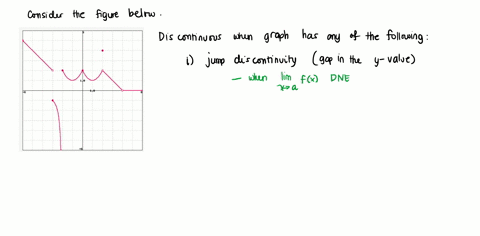 Consider the figure below.
Discontinuous when graph has any of the following:
1) jump discontinuity (gap in the y-value)
— when lim f(x) DNE
x→a